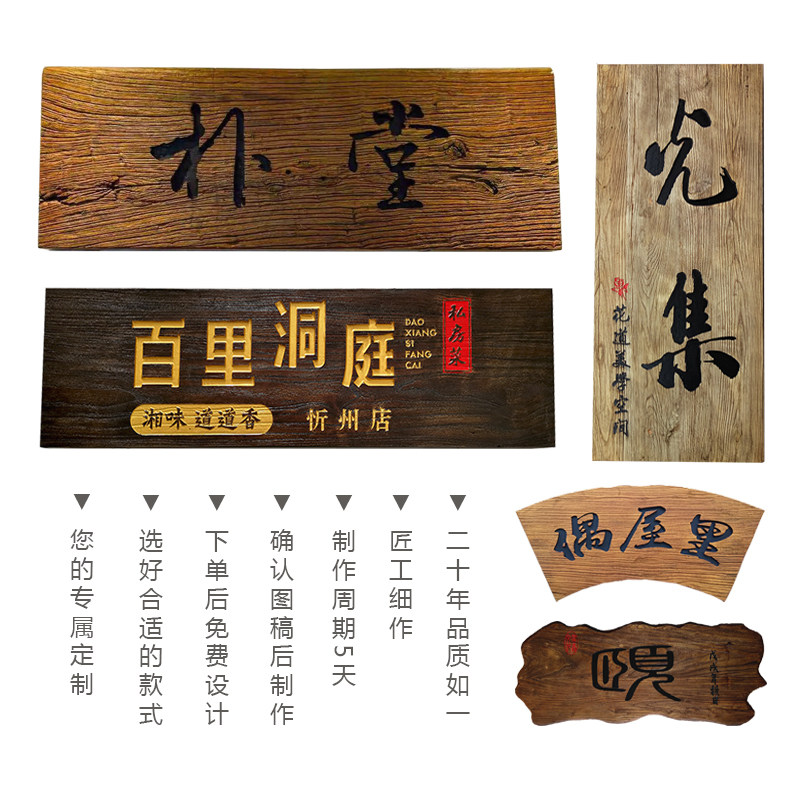 朴堂
光集
花道美学空间
百里洞庭
DAO
XIANG
SI
FANG
CAI
私房菜
湘味 道道香
忻州店
偶屋里
頤
您的专属定制
选好合适的款式
下单后免费设计
确认图稿后制作
制作周期5天
匠工细作
二十年品质如一